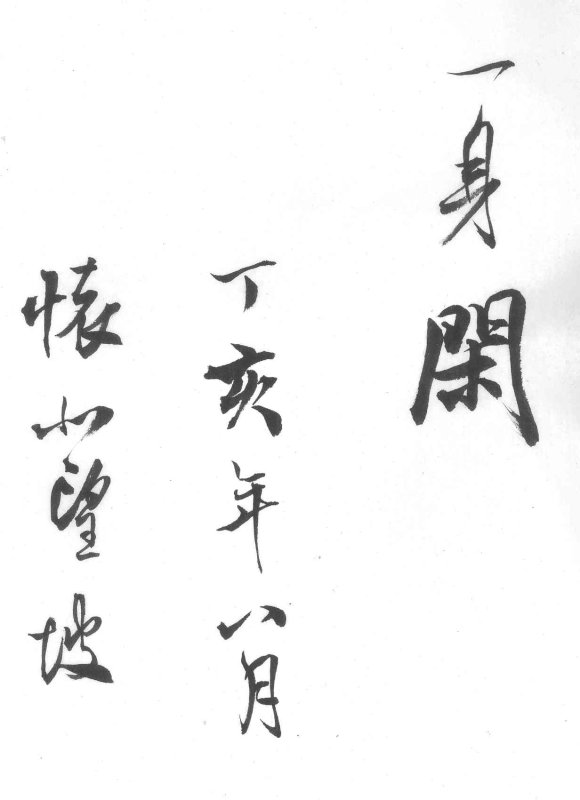 一身閑
丁亥年八月
懷小望坡